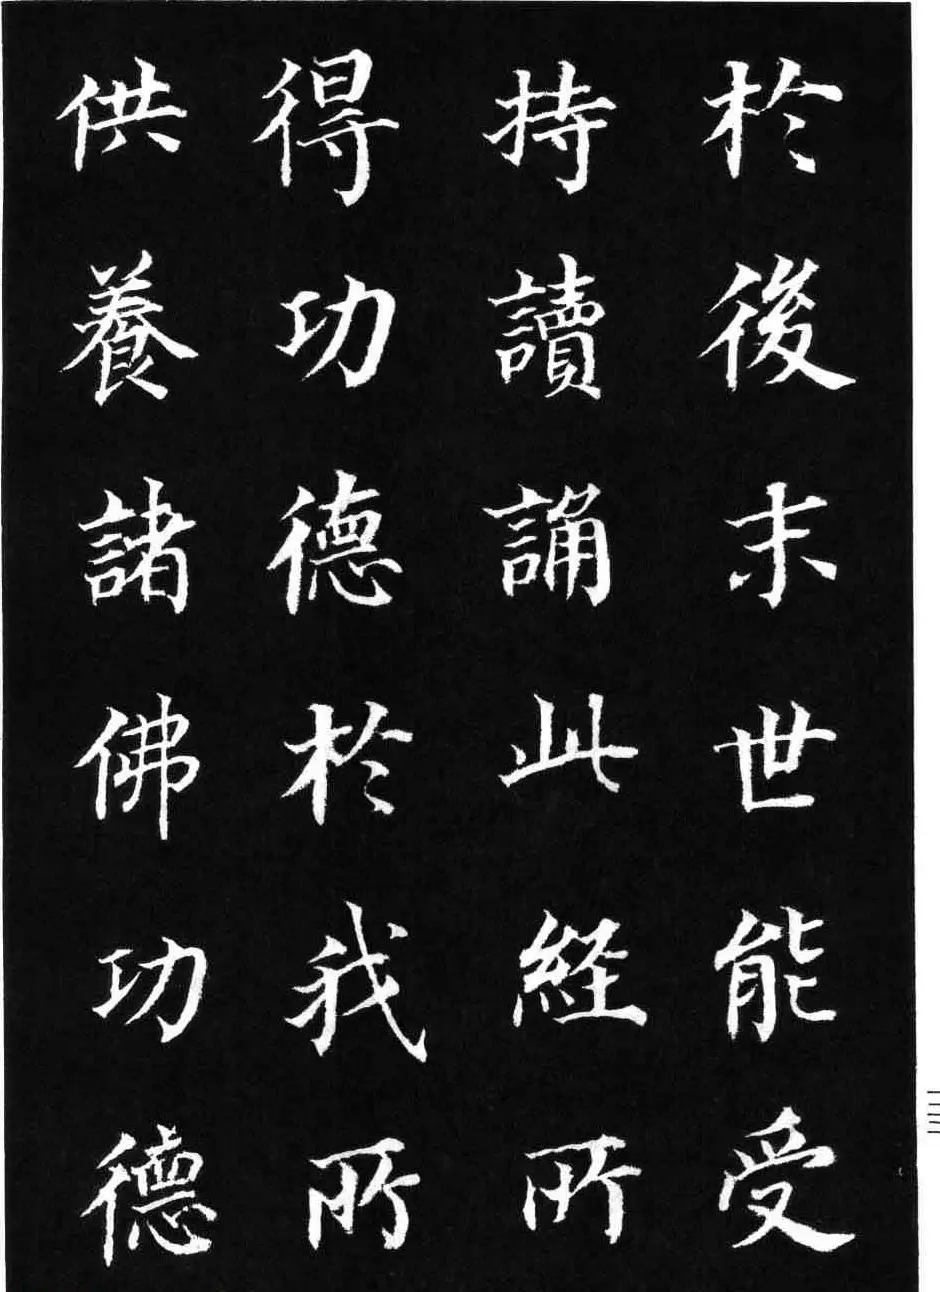 於後末世能受
持讀誦此經所
得功德於我所
供養諸佛功德